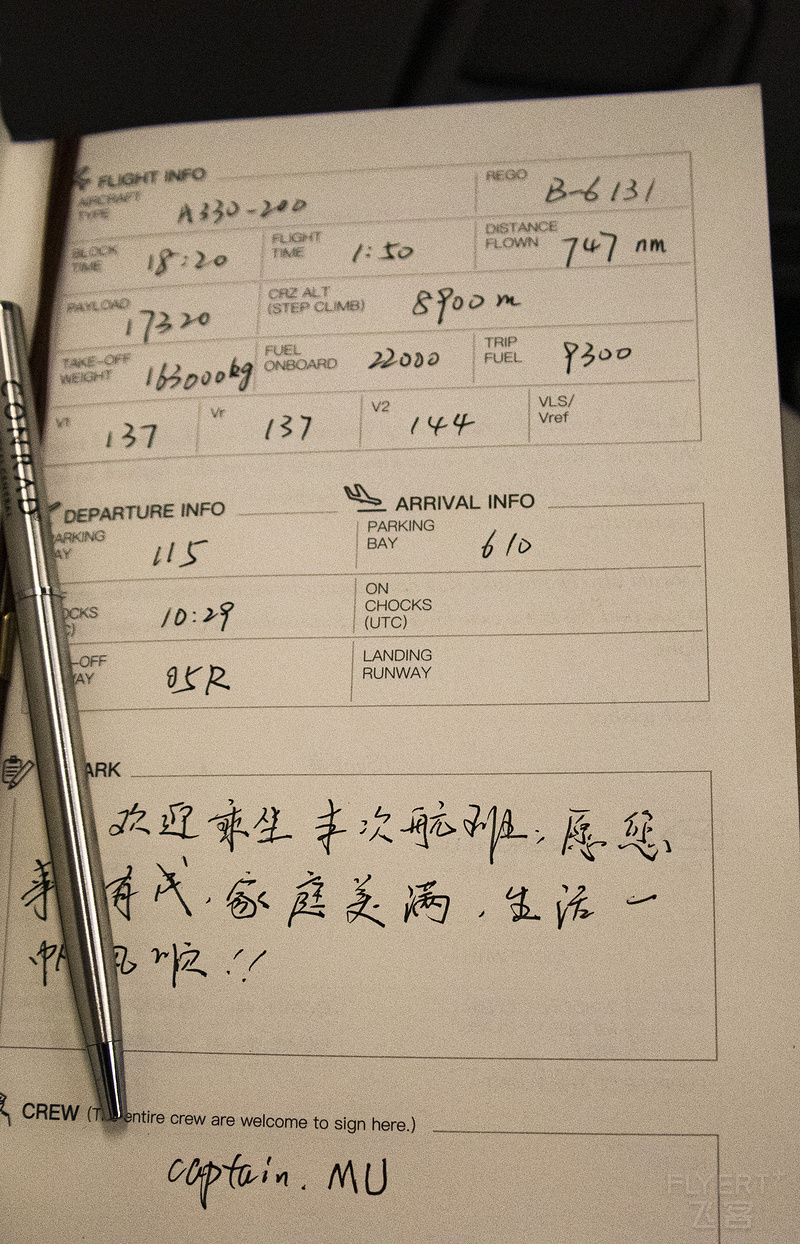 FLIGHT INFO
AIRCRAFT TYPE A330-200 REGO B-6131
BLOCK TIME 18:20 FLIGHT TIME 1:50 DISTANCE FLOWN 747 nm
PAYLOAD 17320 CRZ ALT (STEP CLIMB) 8900 m
TAKE-OFF WEIGHT 163000kg FUEL ONBOARD 22000 TRIP FUEL 9300
V1 137 Vr 137 V2 144 VLS/ Vref
DEPARTURE INFO ARRIVAL INFO
ARKING AY 115 PARKING BAY 610
OCKS C) 10:29 ON CHOCKS (UTC)
-OFF WAY 05R LANDING RUNWAY
ARK
欢迎乘坐本次航班,愿您
事 有成,家庭美满,生活一
帆风顺!!
CREW (T entire crew are welcome to sign here.)
captain. MU
CONRAD
FLYERT+
飞客